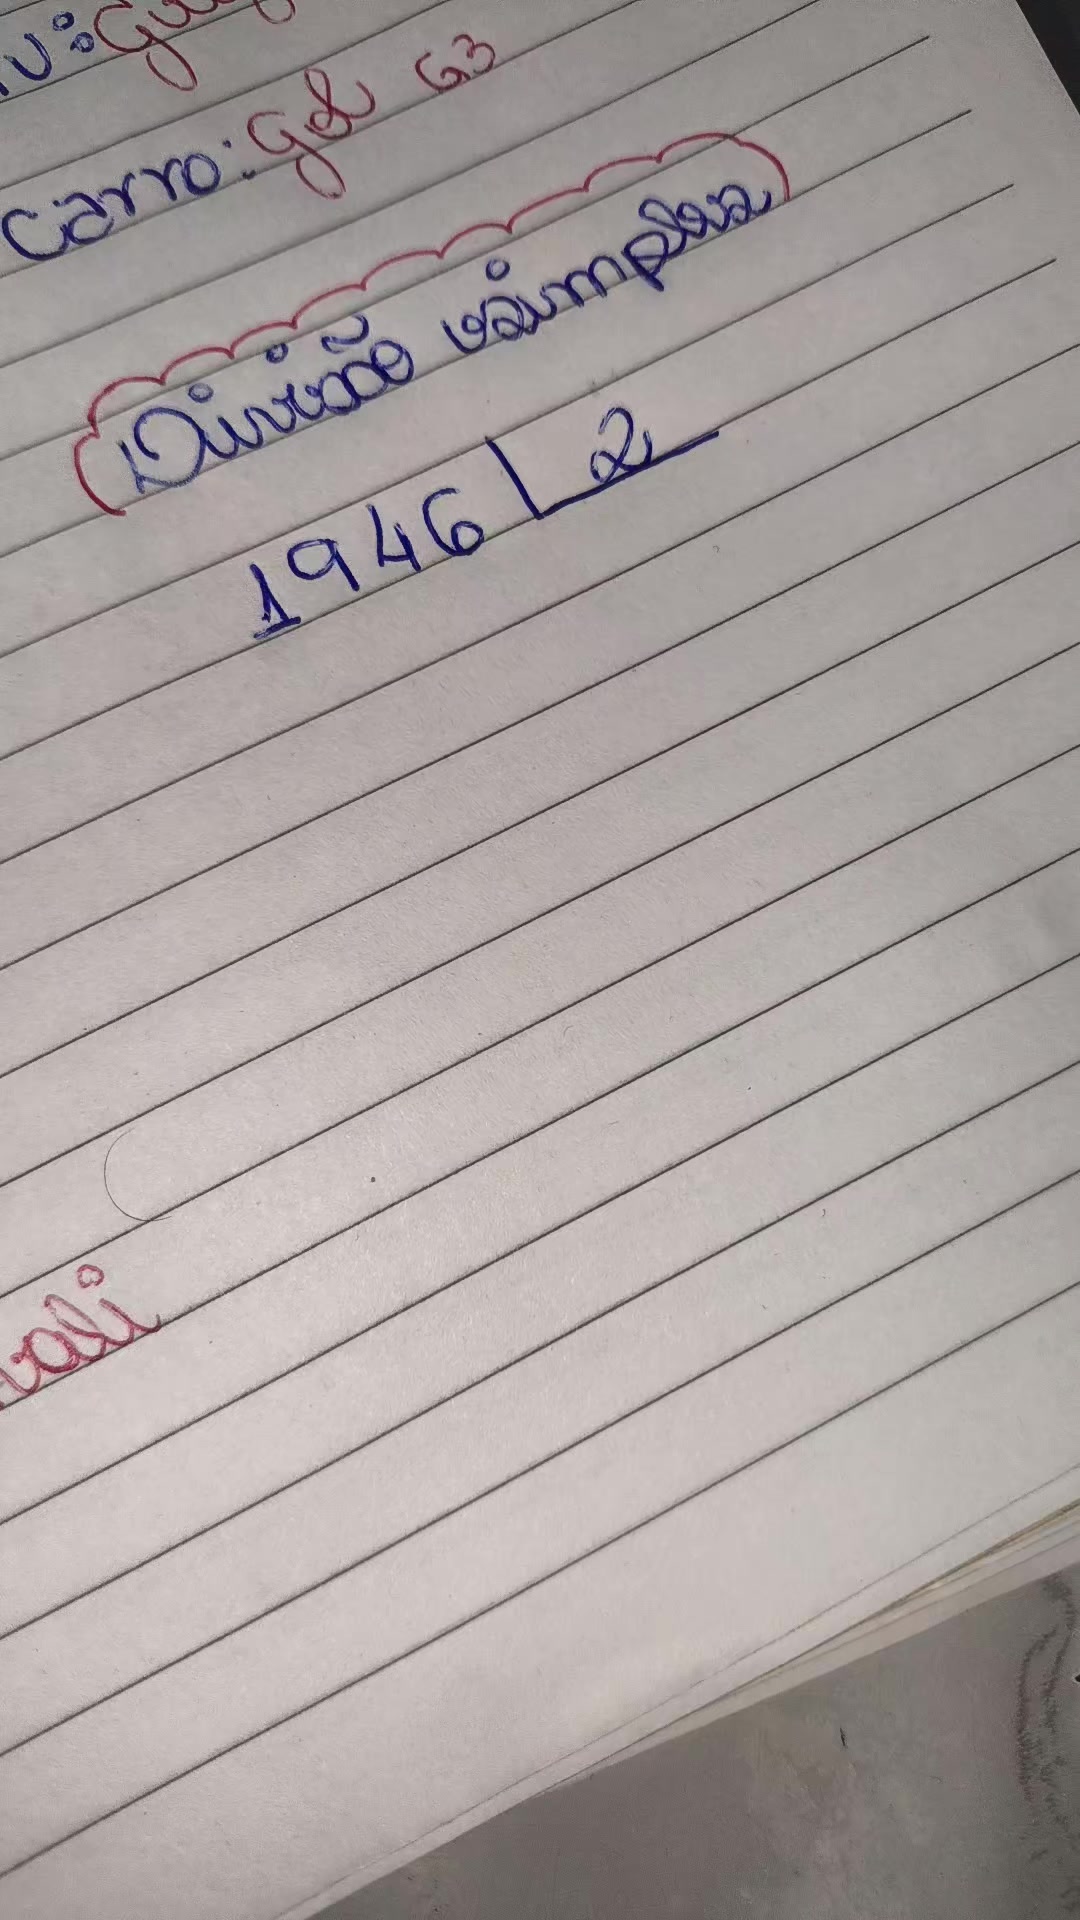 Carro: Gol G3
Divisão simples
1946 2